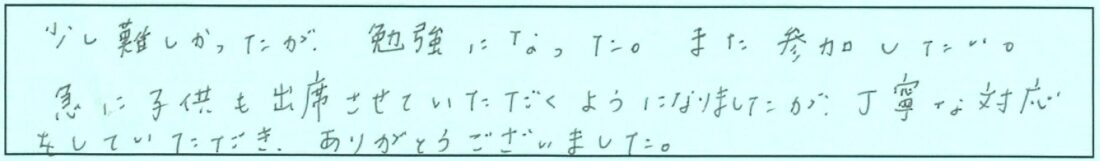 少し難しかったが、勉強になった。また参加したい。
急に子供も出席させていただくようになりましたが、丁寧な対応
をしていただき、ありがとうございました。